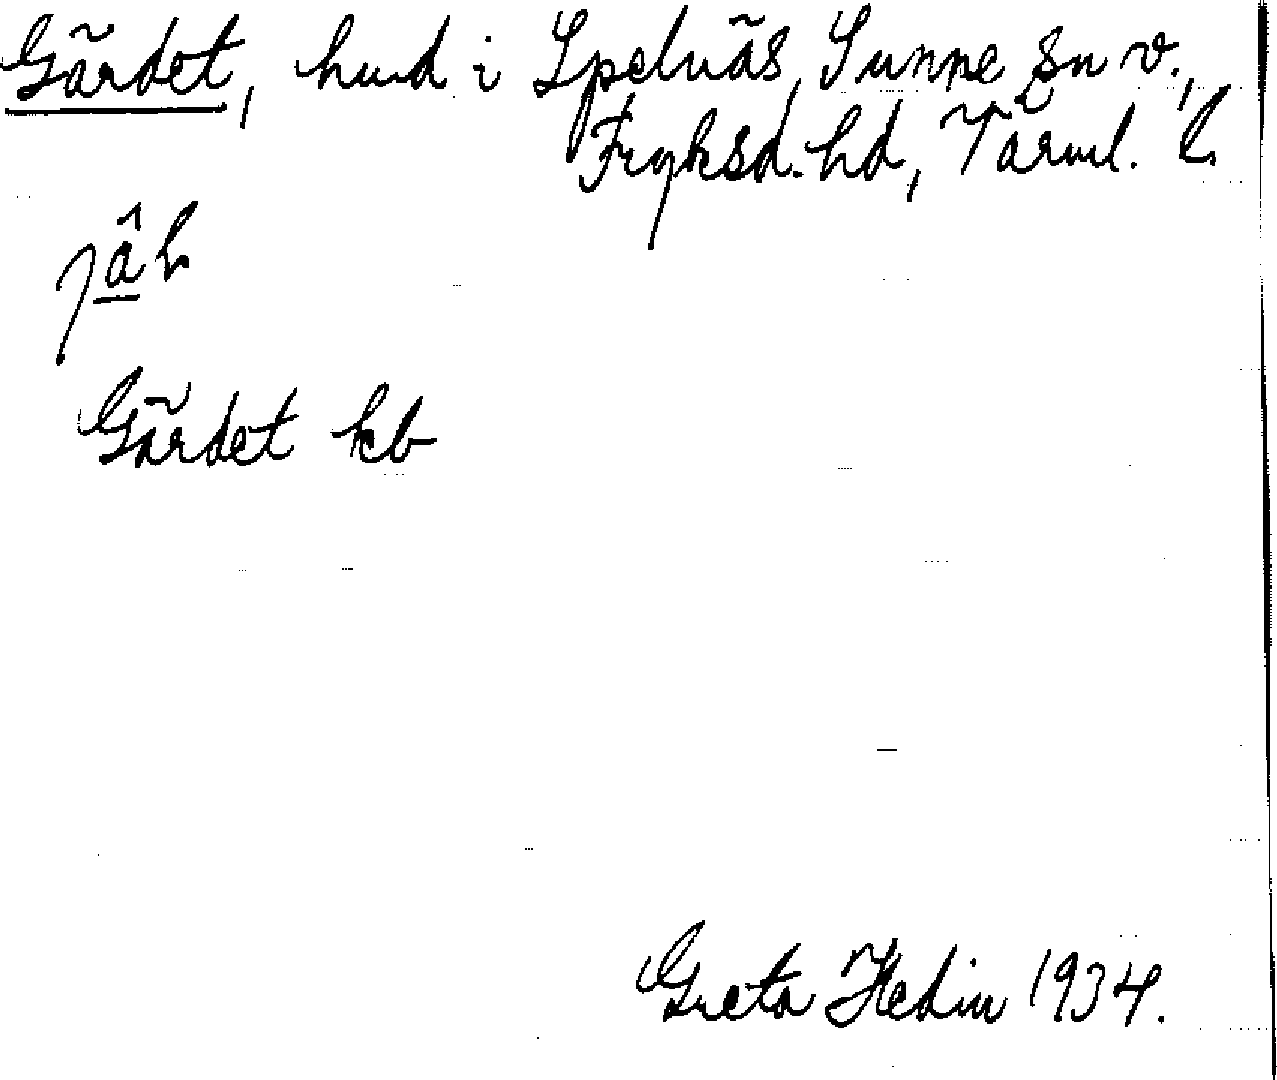 Gärdet, hmd i Spelnäs, Sunne sn v.,
Fryksd. hd, Värml. l.
Gärdet kb
Greta Hedin 1934.